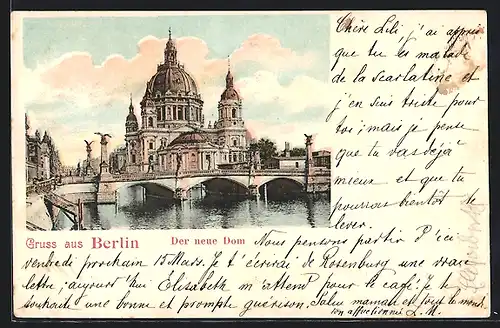 Chère Lili j'ai appris
que tu es malade
de la scarlatine et
j'en suis triste pour
toi; mais je pense
que tu vas déjà
mieux et que tu
pourras bientôt te
lever.
Gruss aus Berlin Der neue Dom
Nous pensons partir d'ici
vendredi prochain 15 Mars. Je t'écrirai de Rosenburg une vraie
lettre; aujourd'hui Elisabeth m'attend pour le café. Je te
souhaite une bonne et prompte guérison. Salue maman et tout le monde
ton affectionnée L.M.